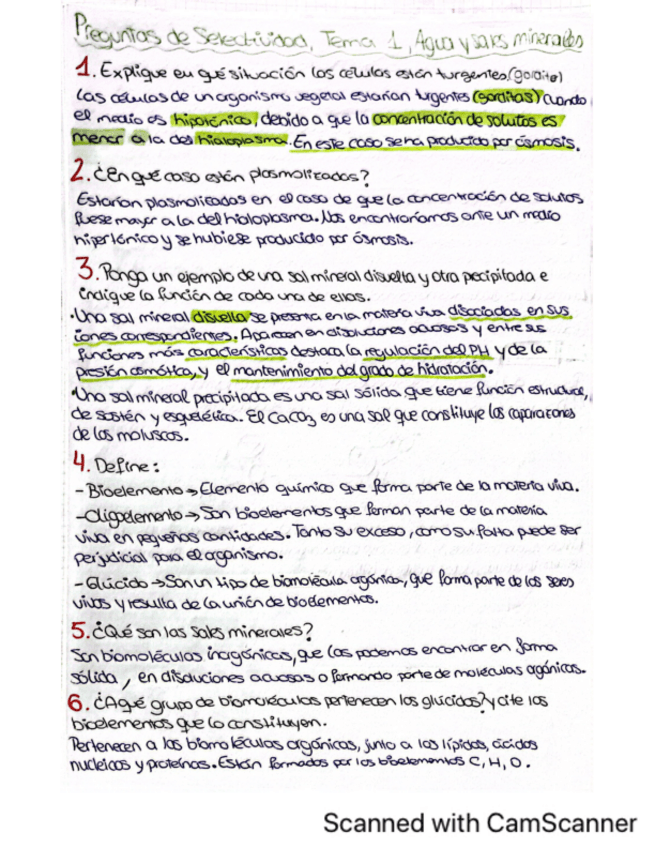 Preguntas de Selectividad, Tema 1, Agua y sales minerales
1. Explique en qué situación las células están turgentes (gordita)
Las células de un organismo vegetal estarían turgentes (gorditas) cuando
el medio es hipotónico, debido a que la concentración de solutos es
menor a la del hialoplasma. En este caso sería producido por ósmosis.
2. ¿En qué caso están plasmolizadas?
Estarían plasmolizadas en el caso de que la concentración de solutos
fuese mayor a la del hialoplasma. Nos encontraríamos ante un medio
hipertónico y se hubiese producido por ósmosis.
3. Ponga un ejemplo de una sal mineral disuelta y otra precipitada e
indique la función de cada una de ellas.
·Una sal mineral disuelta se presenta en la materia viva disociadas en sus
iones correspondientes. Aparecen en disoluciones acuosas y entre sus
funciones más características destaca la regulación del PH y de la
presión osmótica, y el mantenimiento del grado de hidratación.
·Una sal mineral precipitada es una sal sólida que tiene función estructural,
de sostén y esquelética. El CaCO3 es una sal que constituye los caparazones
de los moluscos.
4. Define:
- Bioelemento → Elemento químico que forma parte de la materia viva.
- Oligoelemento → Son bioelementos que forman parte de la materia
viva en pequeñas cantidades. Tanto su exceso, como su falta puede ser
perjudicial para el organismo.
- Glúcido → Son un tipo de biomolécula orgánica, que forma parte de los seres
vivos y resulta de la unión de bioelementos.
5. ¿Qué son las sales minerales?
Son biomoléculas inorgánicas, que las podemos encontrar en forma
sólida, en disoluciones acuosas o formando parte de moléculas orgánicas.
6. ¿A qué grupo de biomoléculas pertenecen los glúcidos? y cite los
bioelementos que lo constituyen.
Pertenecen a las biomoléculas orgánicas, junto a los lípidos, ácidos
nucleicos y proteínas. Están formados por los bioelementos C, H, O.
Scanned with CamScanner